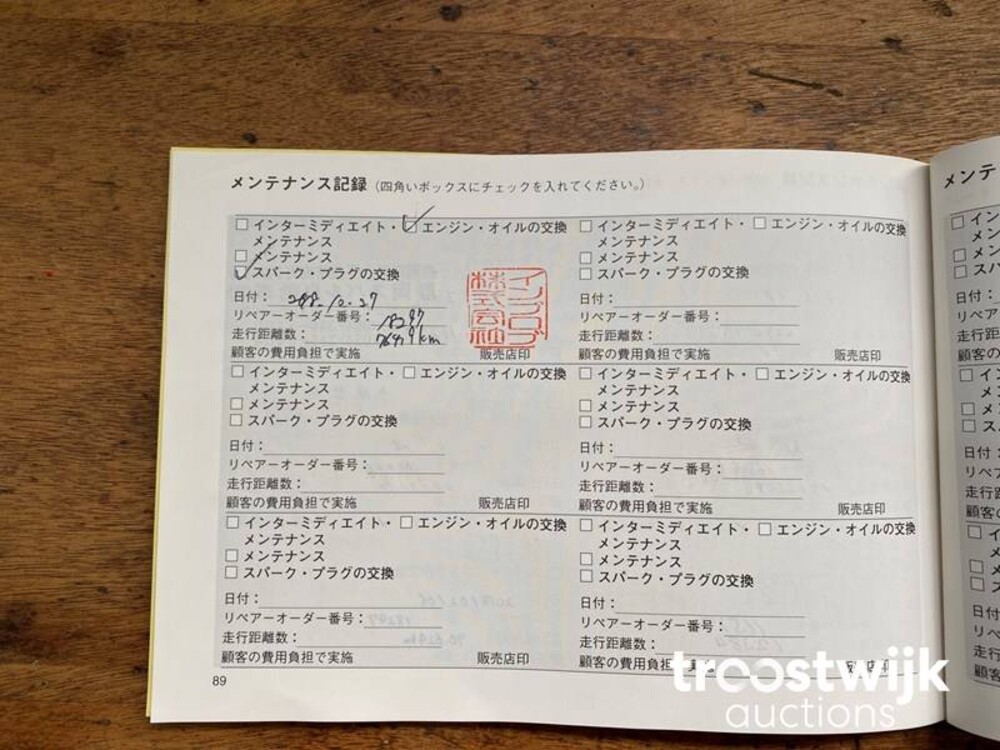 メンテナンス記録（四角いボックスにチェックを入れてください。）
□ インターミディエイト・ □ エンジン・オイルの交換
メンテナンス
□ メンテナンス
□ スパーク・プラグの交換
日付：
リペアーオーダー番号： 18297
走行距離数： km
顧客の費用負担で実施 販売店印
株式会社
□ インターミディエイト・ □ エンジン・オイルの交換
メンテナンス
□ メンテナンス
□ スパーク・プラグの交換
日付：
リペアーオーダー番号：
走行距離数：
顧客の費用負担で実施 販売店印
□ インターミディエイト・ □ エンジン・オイルの交換
メンテナンス
□ メンテナンス
□ スパーク・プラグの交換
日付：
リペアーオーダー番号：
走行距離数：
顧客の費用負担で実施 販売店印
□ インターミディエイト・ □ エンジン・オイルの交換
メンテナンス
□ メンテナンス
□ スパーク・プラグの交換
日付：
リペアーオーダー番号：
走行距離数：
顧客の費用負担で実施 販売店印
□ インターミディエイト・ □ エンジン・オイルの交換
メンテナンス
□ メンテナンス
□ スパーク・プラグの交換
日付：
リペアーオーダー番号：
走行距離数：
顧客の費用負担で実施 販売店印
□ インターミディエイト・ □ エンジン・オイルの交換
メンテナンス
□ メンテナンス
□ スパーク・プラグの交換
日付：
リペアーオーダー番号：
走行距離数：
顧客の費用負担 販売店印
89
troostwijk
auctions